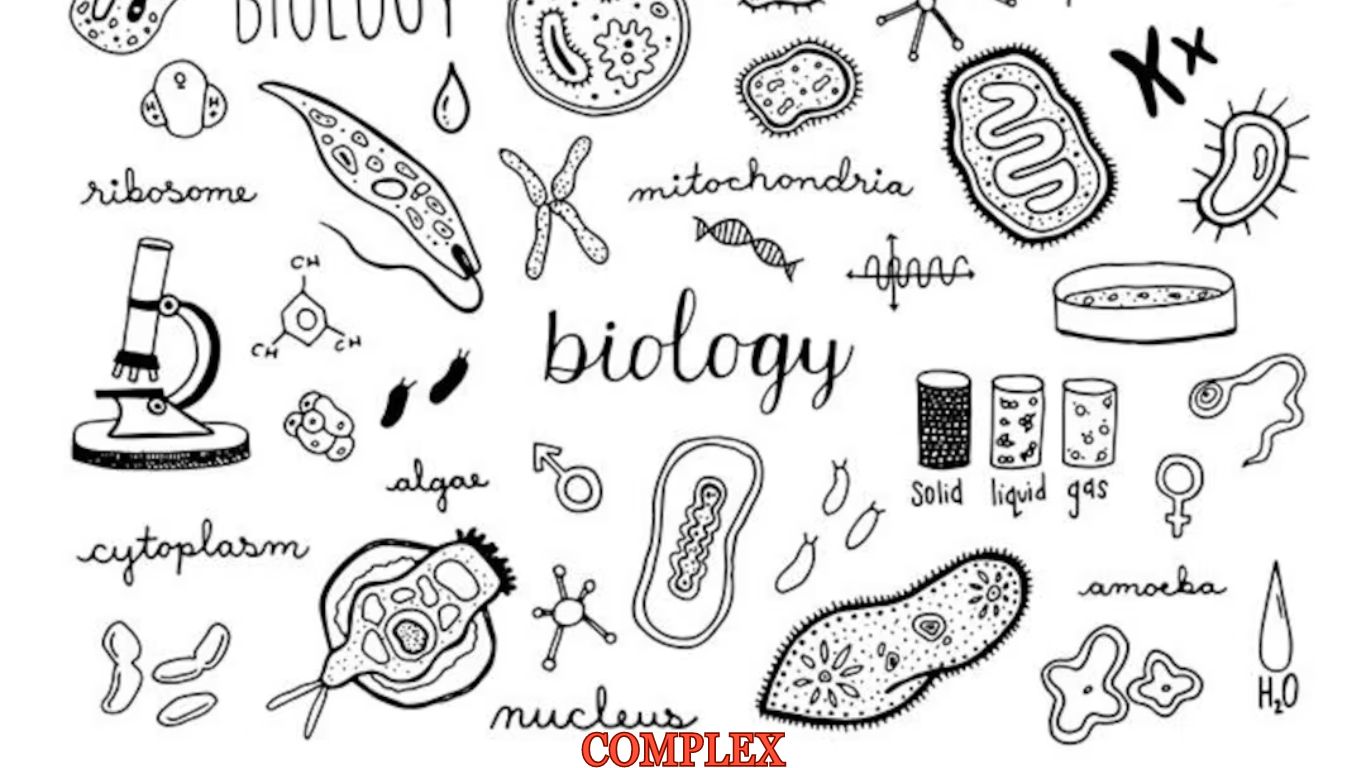 BIOLOGY
H O H
ribosome
mitochondria
CH
CH CH
biology
solid liquid gas
algae
cytoplasm
amoeba
H₂O
nucleus
COMPLEX